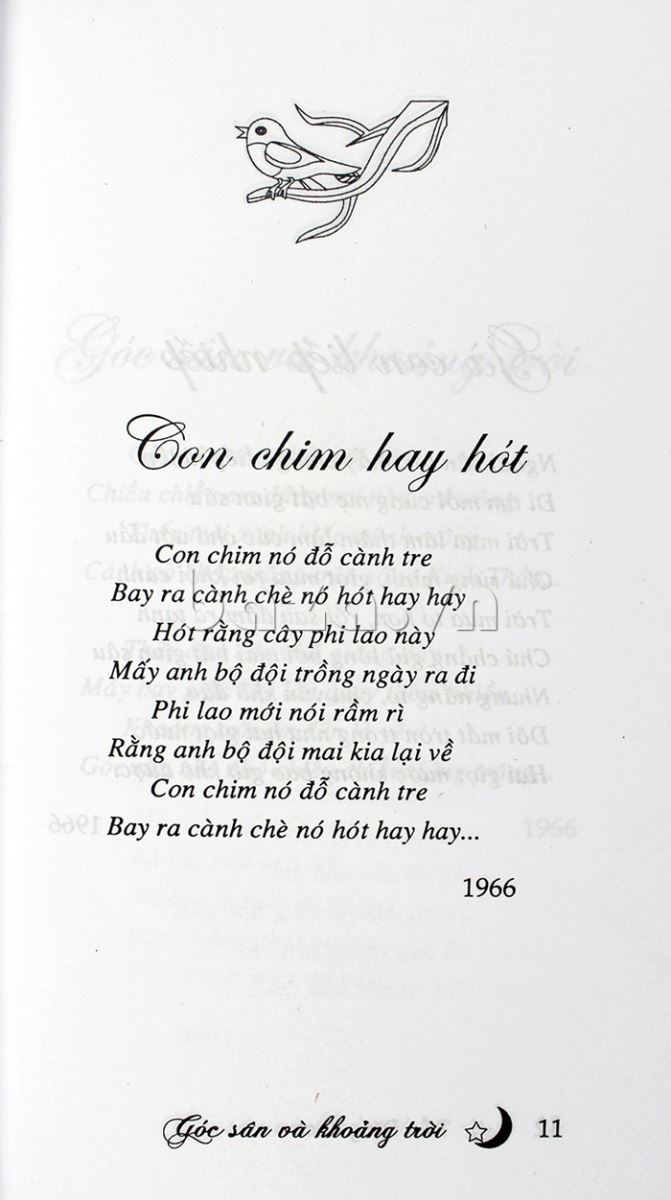 Con chim hay hót
Con chim nó đỗ cành tre
Bay ra cành chè nó hót hay hay
Hót rằng cây phi lao này
Mấy anh bộ đội trồng ngày ra đi
Phi lao mới nói rầm rì
Rằng anh bộ đội mai kia lại về
Con chim nó đỗ cành tre
Bay ra cành chè nó hót hay hay...
1966
Góc sân và khoảng trời 11